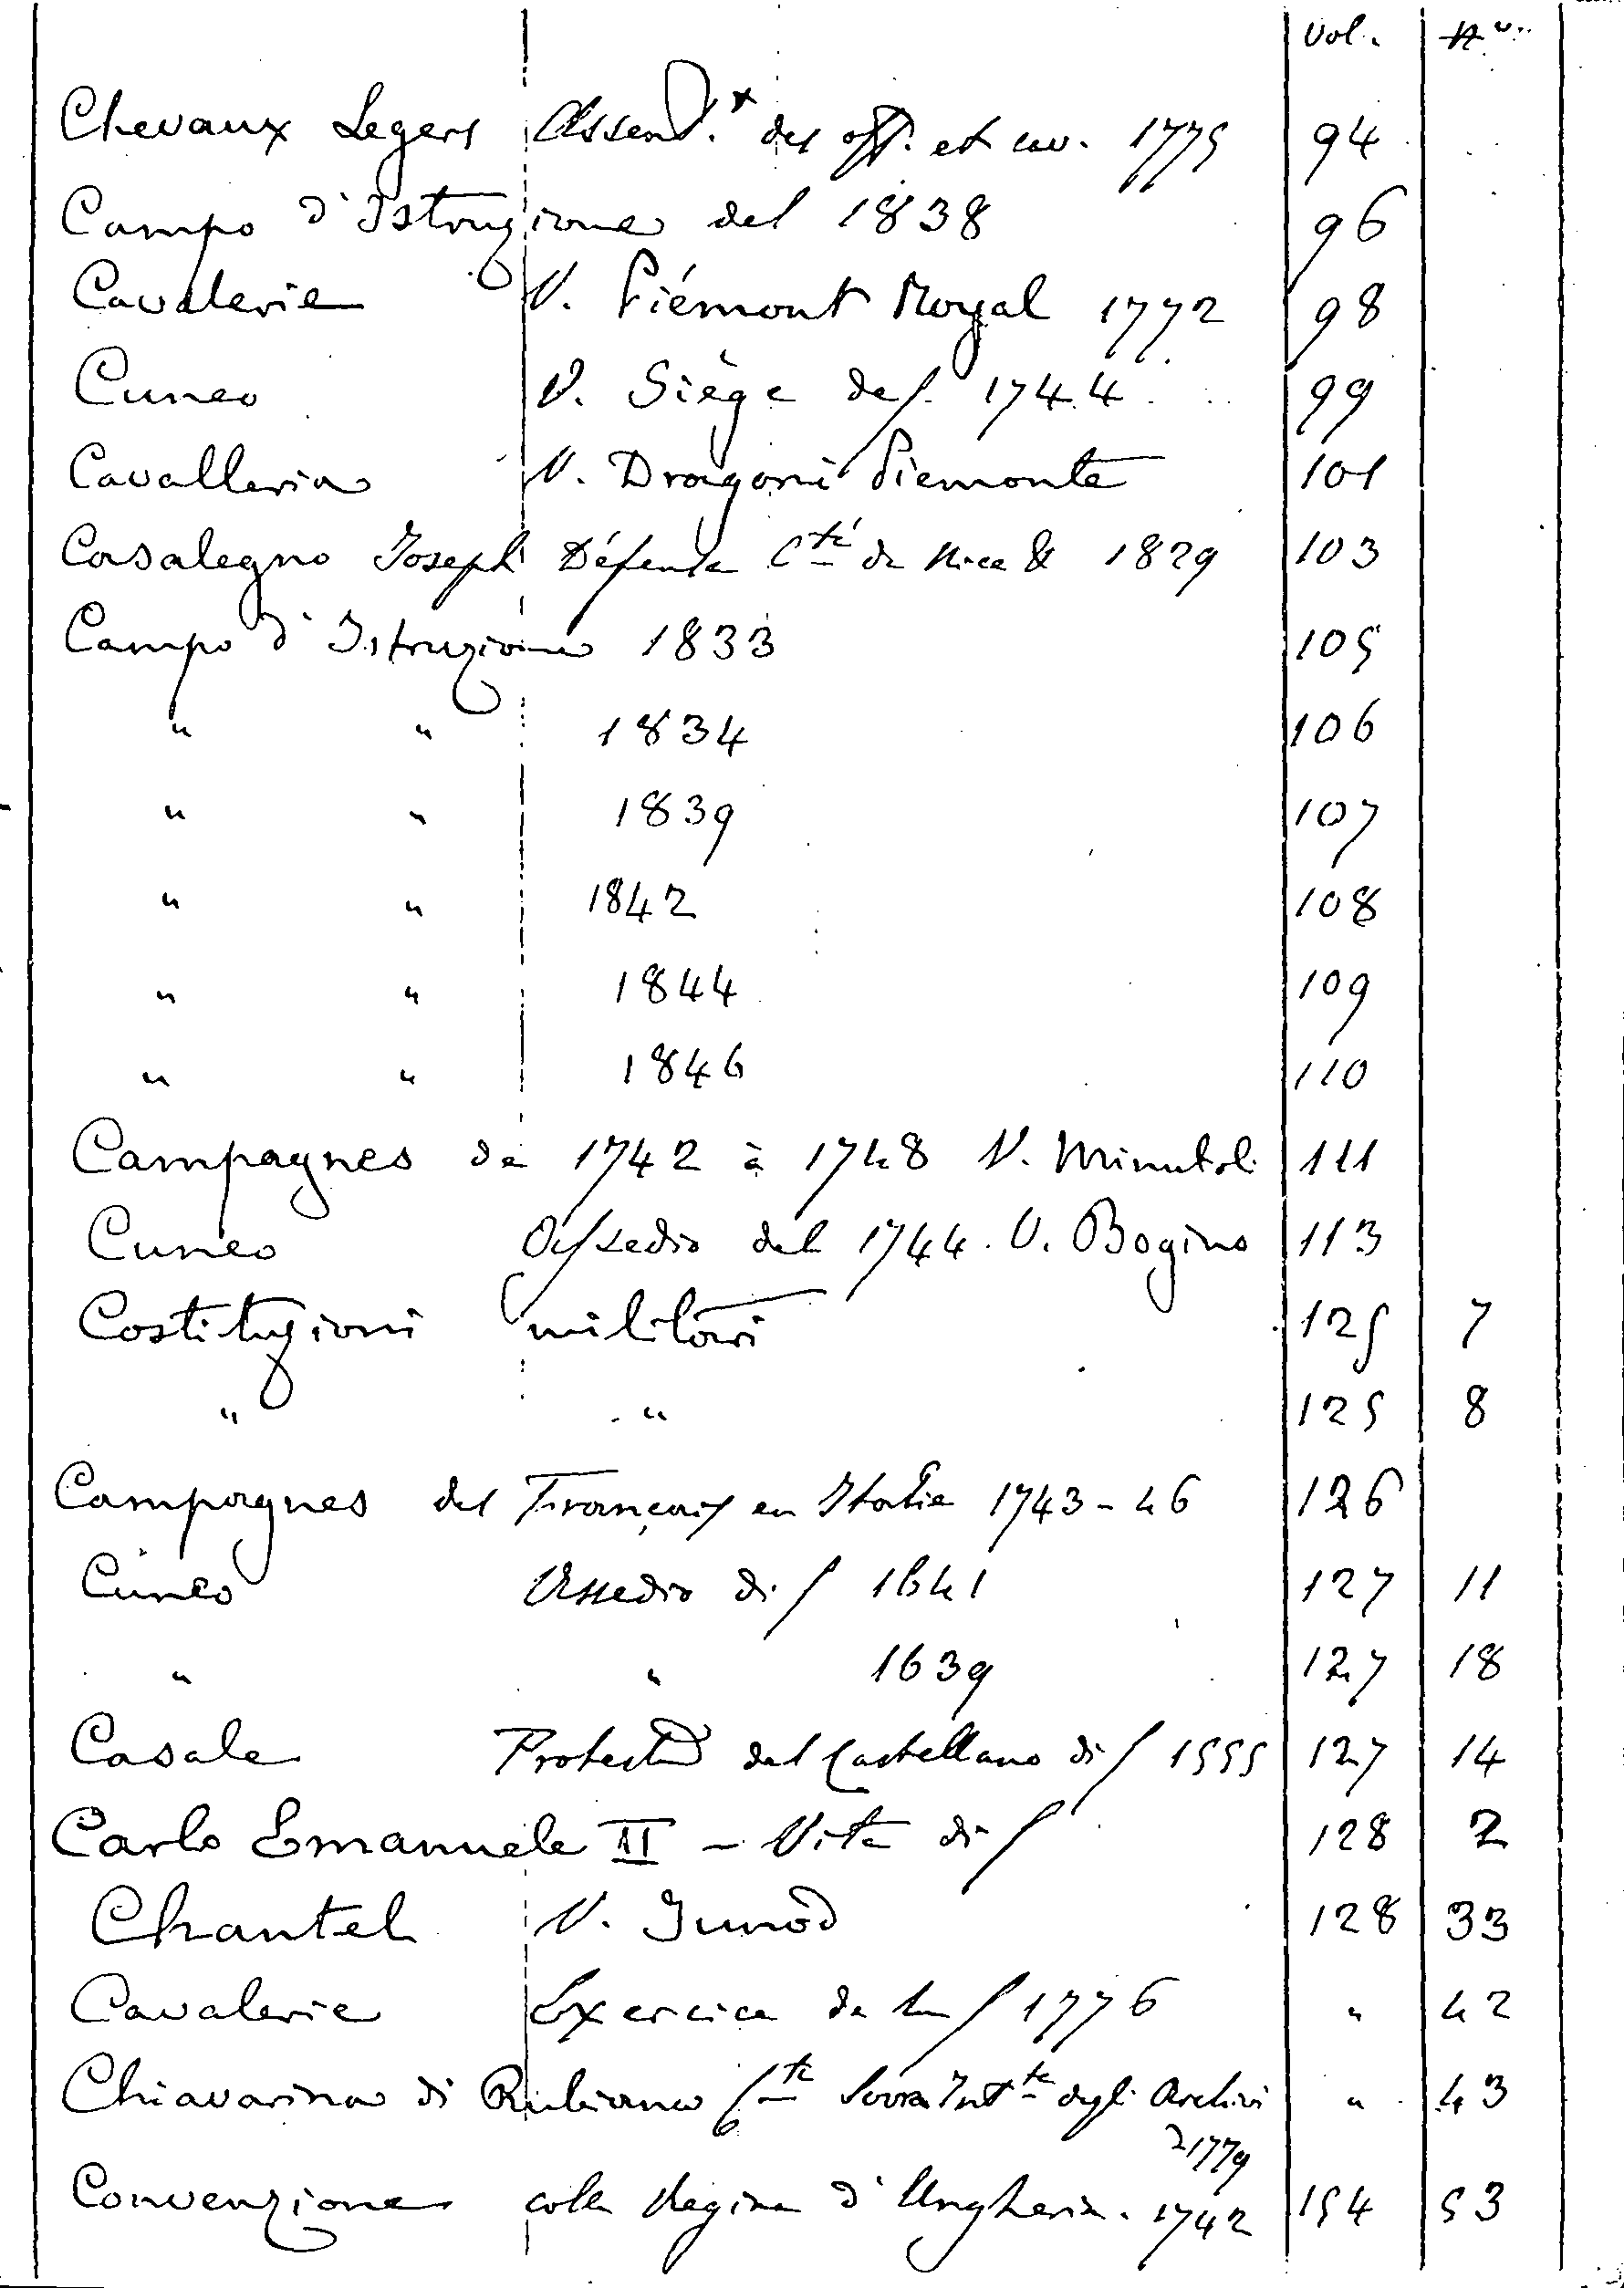 Vol. N°
Chevaux Legers Assent.* des off. et cav. 1775 94
Campo d'Istruzione del 1838 96
Cavalerie V. Piémont Royal 1772 98
Cuneo V. Siège de/ 1744 99
Cavalleria V. Dragoni Piemonte 101
Casalegno Joseph Défense Cté de Nice & 1829 103
Campo d'Istruzione 1833 105
" " 1834 106
" " 1839 107
" " 1842 108
" " 1844 109
" " 1846 110
Campagnes de 1742 à 1748 V. Minutoli 111
Cuneo Assedio del 1744. V. Bogino 113
Costituzioni militari 125 7
" " 125 8
Campagnes des Français en Italie 1743-46 126
Cuneo Assedio di/ 1641 127 11
" " 1639 127 18
Casale Protesta del Castellano di/ 1555 127 14
Carlo Emanuele II - Vita di/ 128 2
Chantel V. Junod 128 33
Cavalerie Exercice de la/ 1776 " 42
Chiavarina di Rubiana Cte Sovra Intte degli Archivi " 43
1779
Convenzione colla Regina d'Ungheria. 1742 154 53